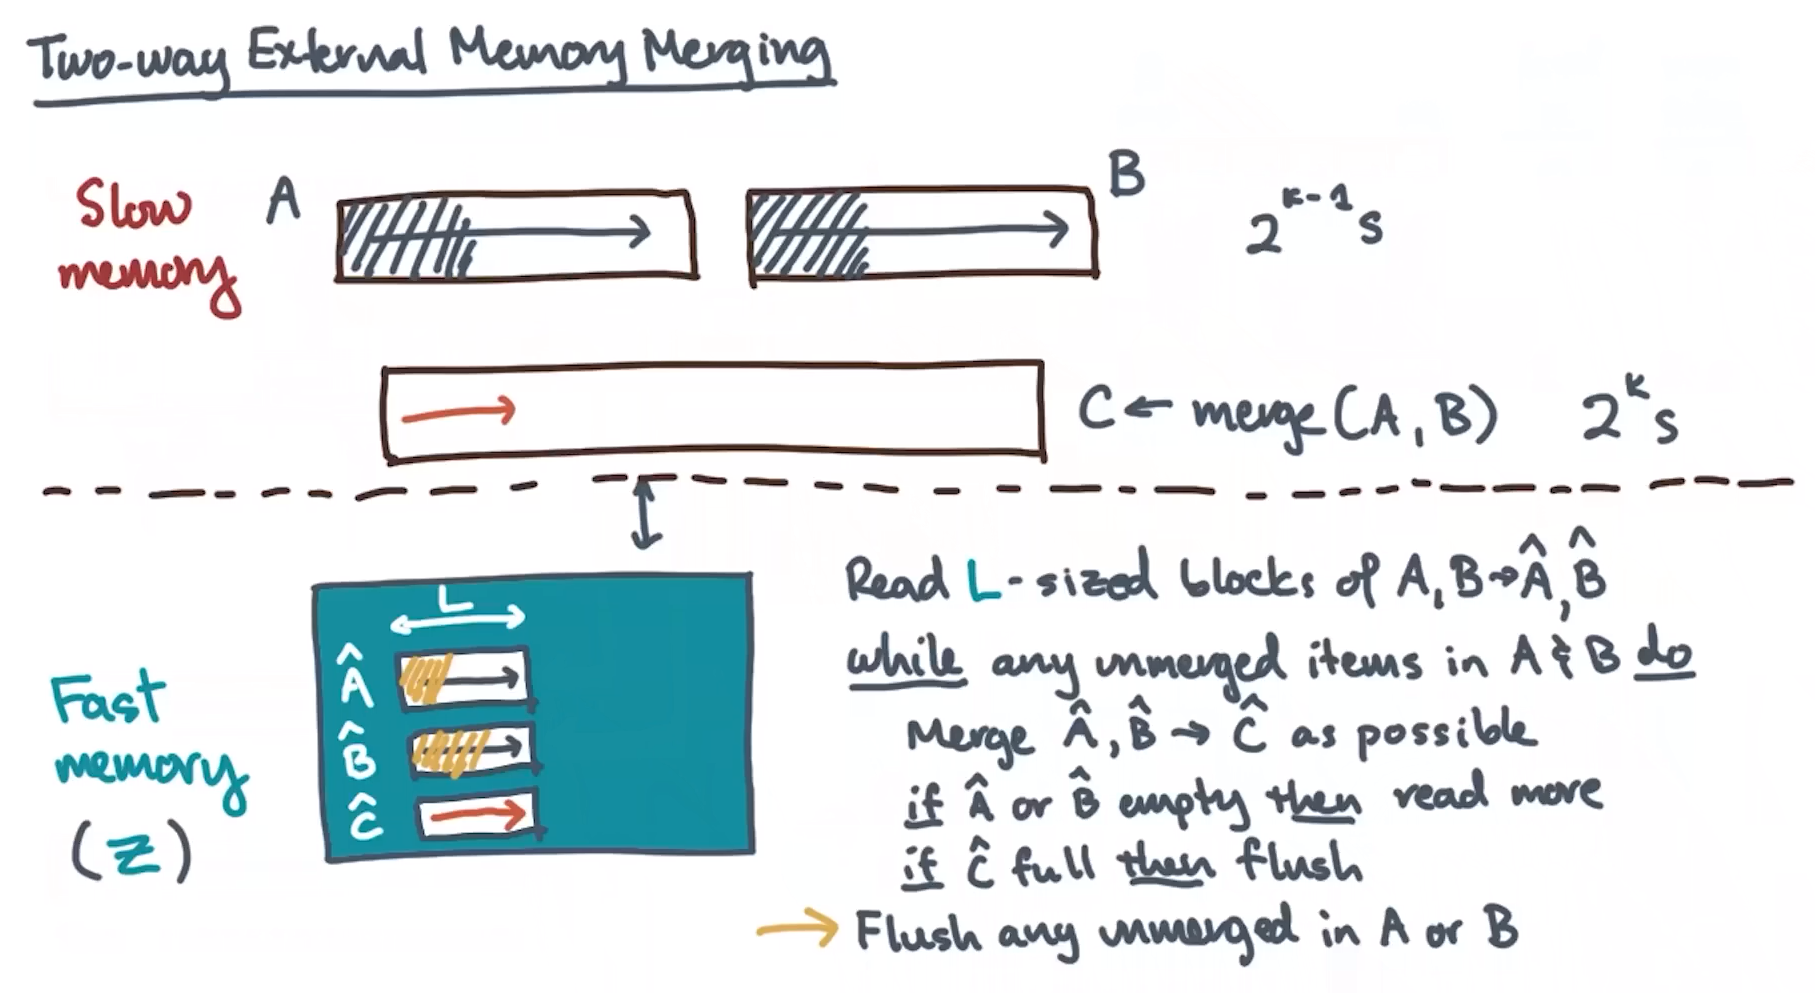 Two-way External Memory Merging
Slow memory
A
B
2^{k-1}s
C ← merge(A, B)
2^k s
L
Â
B̂
Ĉ
Fast memory
(Z)
Read L-sized blocks of A, B → Â, B̂
while any unmerged items in A & B do
Merge Â, B̂ → Ĉ as possible
if Â or B̂ empty then read more
if Ĉ full then flush
→ Flush any unmerged in A or B